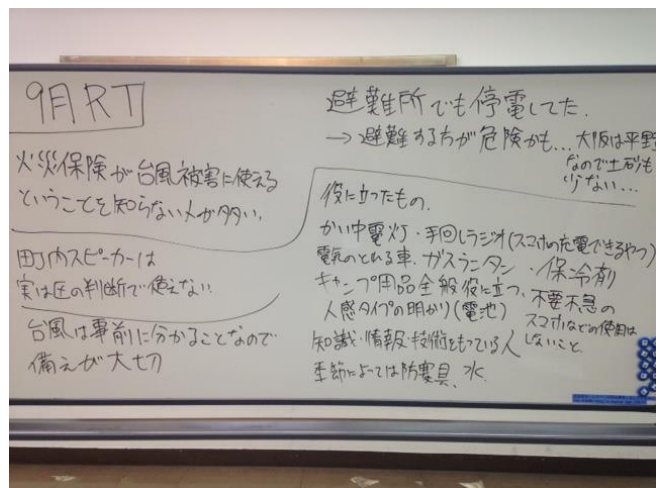 9月RT
火災保険が台風被害に使える
ということを知らない人が多い。
町内スピーカーは
実は区の判断で使えない
台風は事前に分かることなので
備えが大切
避難所でも停電してた.
→避難する方が危険かも…大阪は平野
なので土砂も
少ない…
役に立ったもの.
かい中電灯・手回しラジオ(スマホの充電できるやつ)
電気のとれる車.ガスランタン・保冷剤
キャンプ用品全般役に立つ.
人感タイプの明かり(電池)
知識・情報・技術をもっている人
季節によっては防寒具、水
不要不急の
スマホなどの使用は
しないこと.